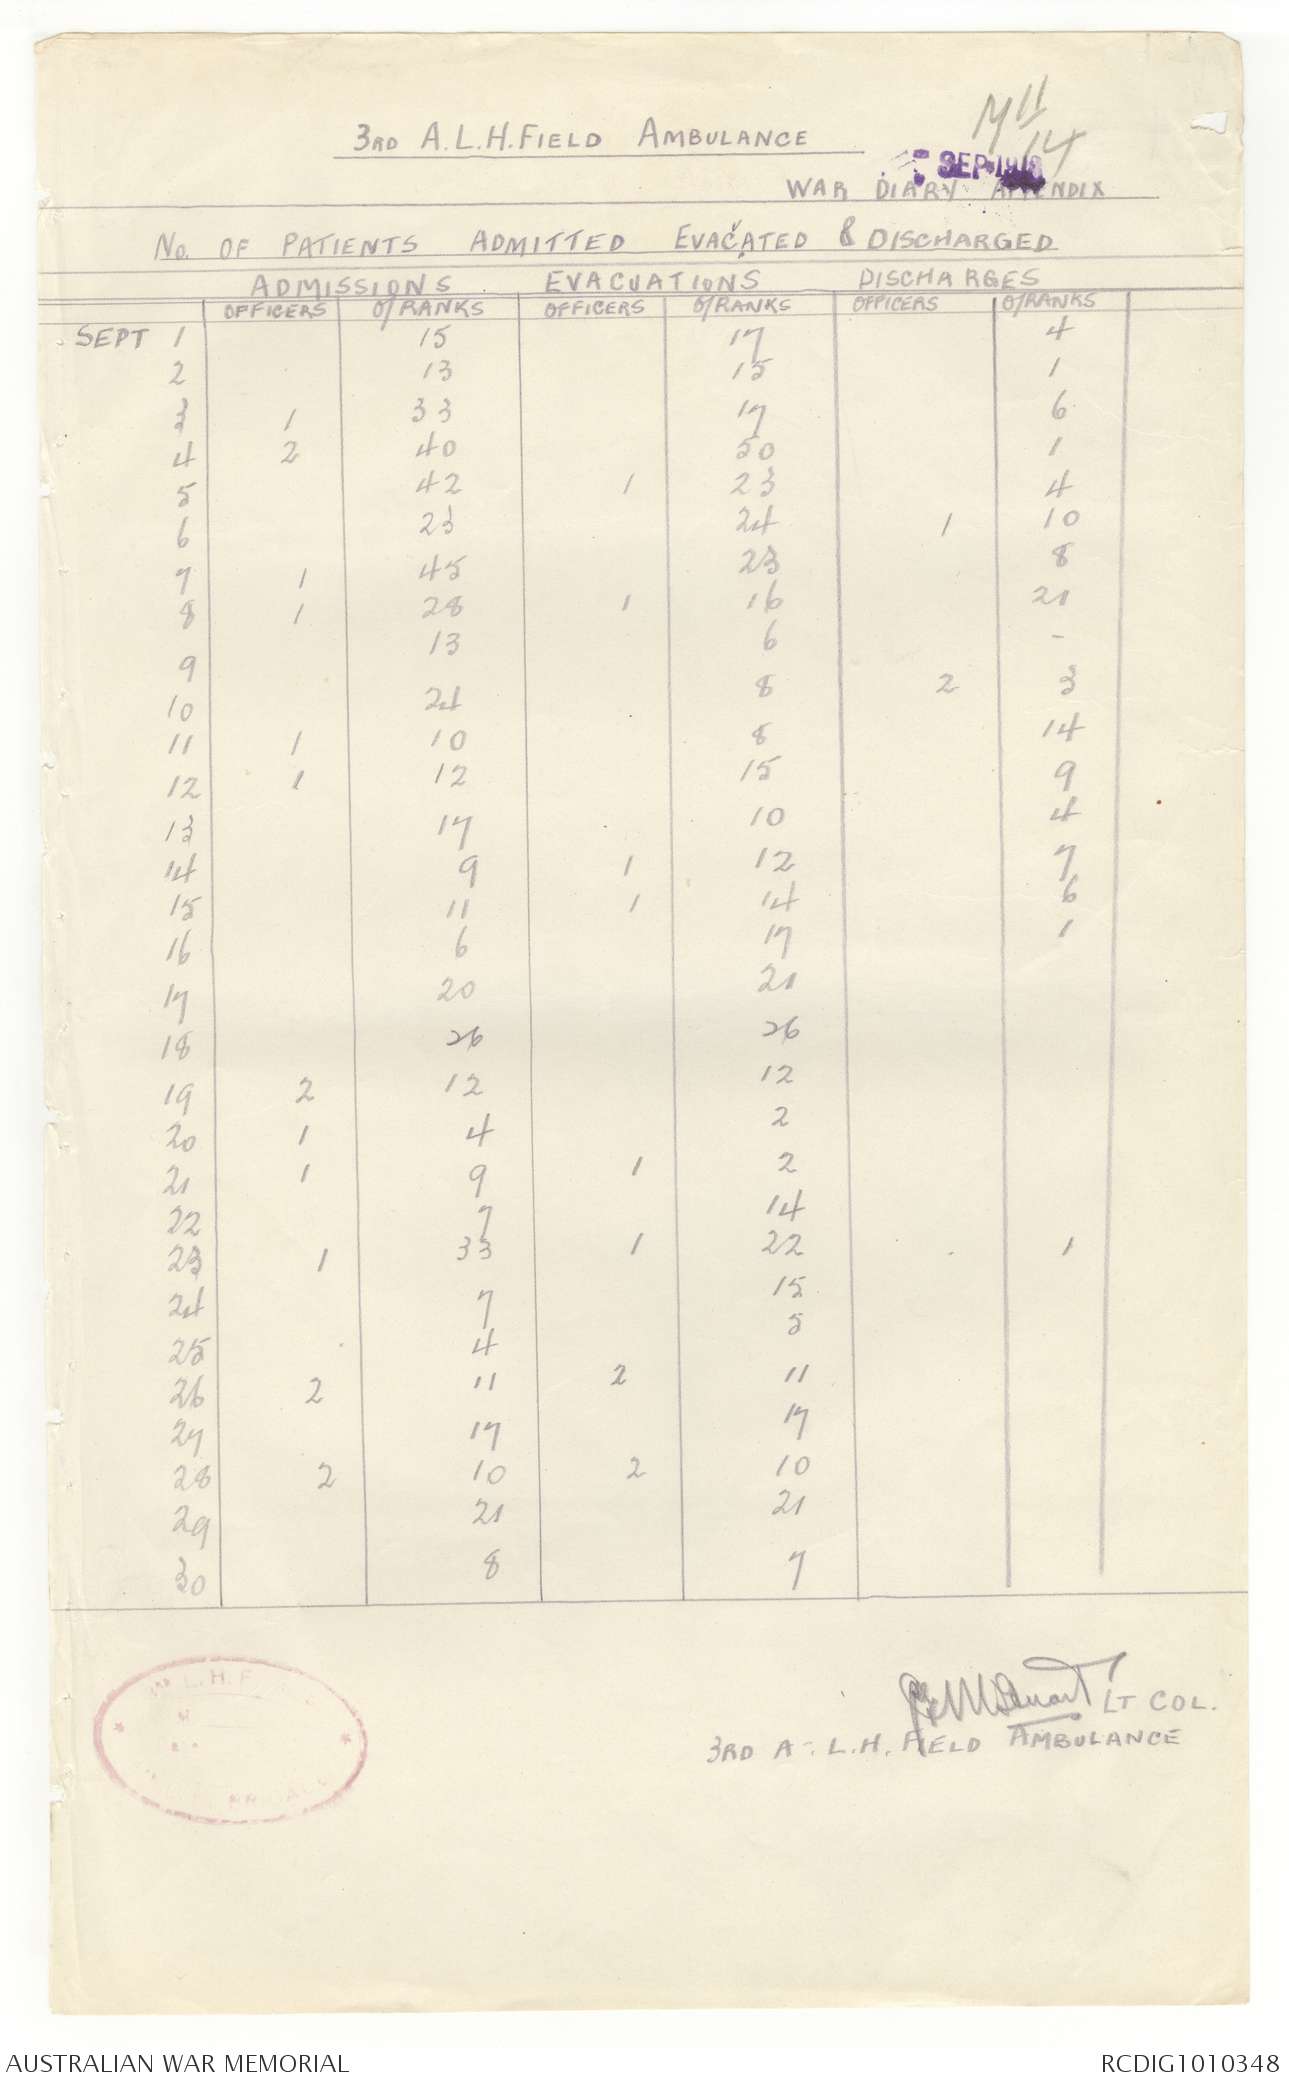 M11
14
3RD A.L.H. FIELD AMBULANCE
SEP 1918
WAR DIARY APPENDIX
No. OF PATIENTS ADMITTED EVACATED & DISCHARGED
ADMISSIONS EVACUATIONS DISCHARGES
OFFICERS O/RANKS OFFICERS O/RANKS OFFICERS O/RANKS
SEPT 1 15 17 4
2 13 15 1
3 1 33 17 6
4 2 40 50 1
5 42 1 23 4
6 23 24 1 10
7 1 45 23 8
8 1 28 1 16 21
9 13 6 -
10 24 8 2 3
11 1 10 8 14
12 1 12 15 9
13 17 10 4
14 9 1 12 7
15 11 1 14 6
16 6 17 1
17 20 21
18 26 26
19 2 12 12
20 1 4 2
21 1 9 1 2
22 7 14
23 1 33 1 22 1
24 7 15
25 4 5
26 2 11 2 11
27 17 17
28 2 10 2 10
29 21 21
30 8 7
LT COL.
3RD A. L.H. FIELD AMBULANCE
L.H.F
AUSTRALIAN WAR MEMORIAL RCDIG1010348